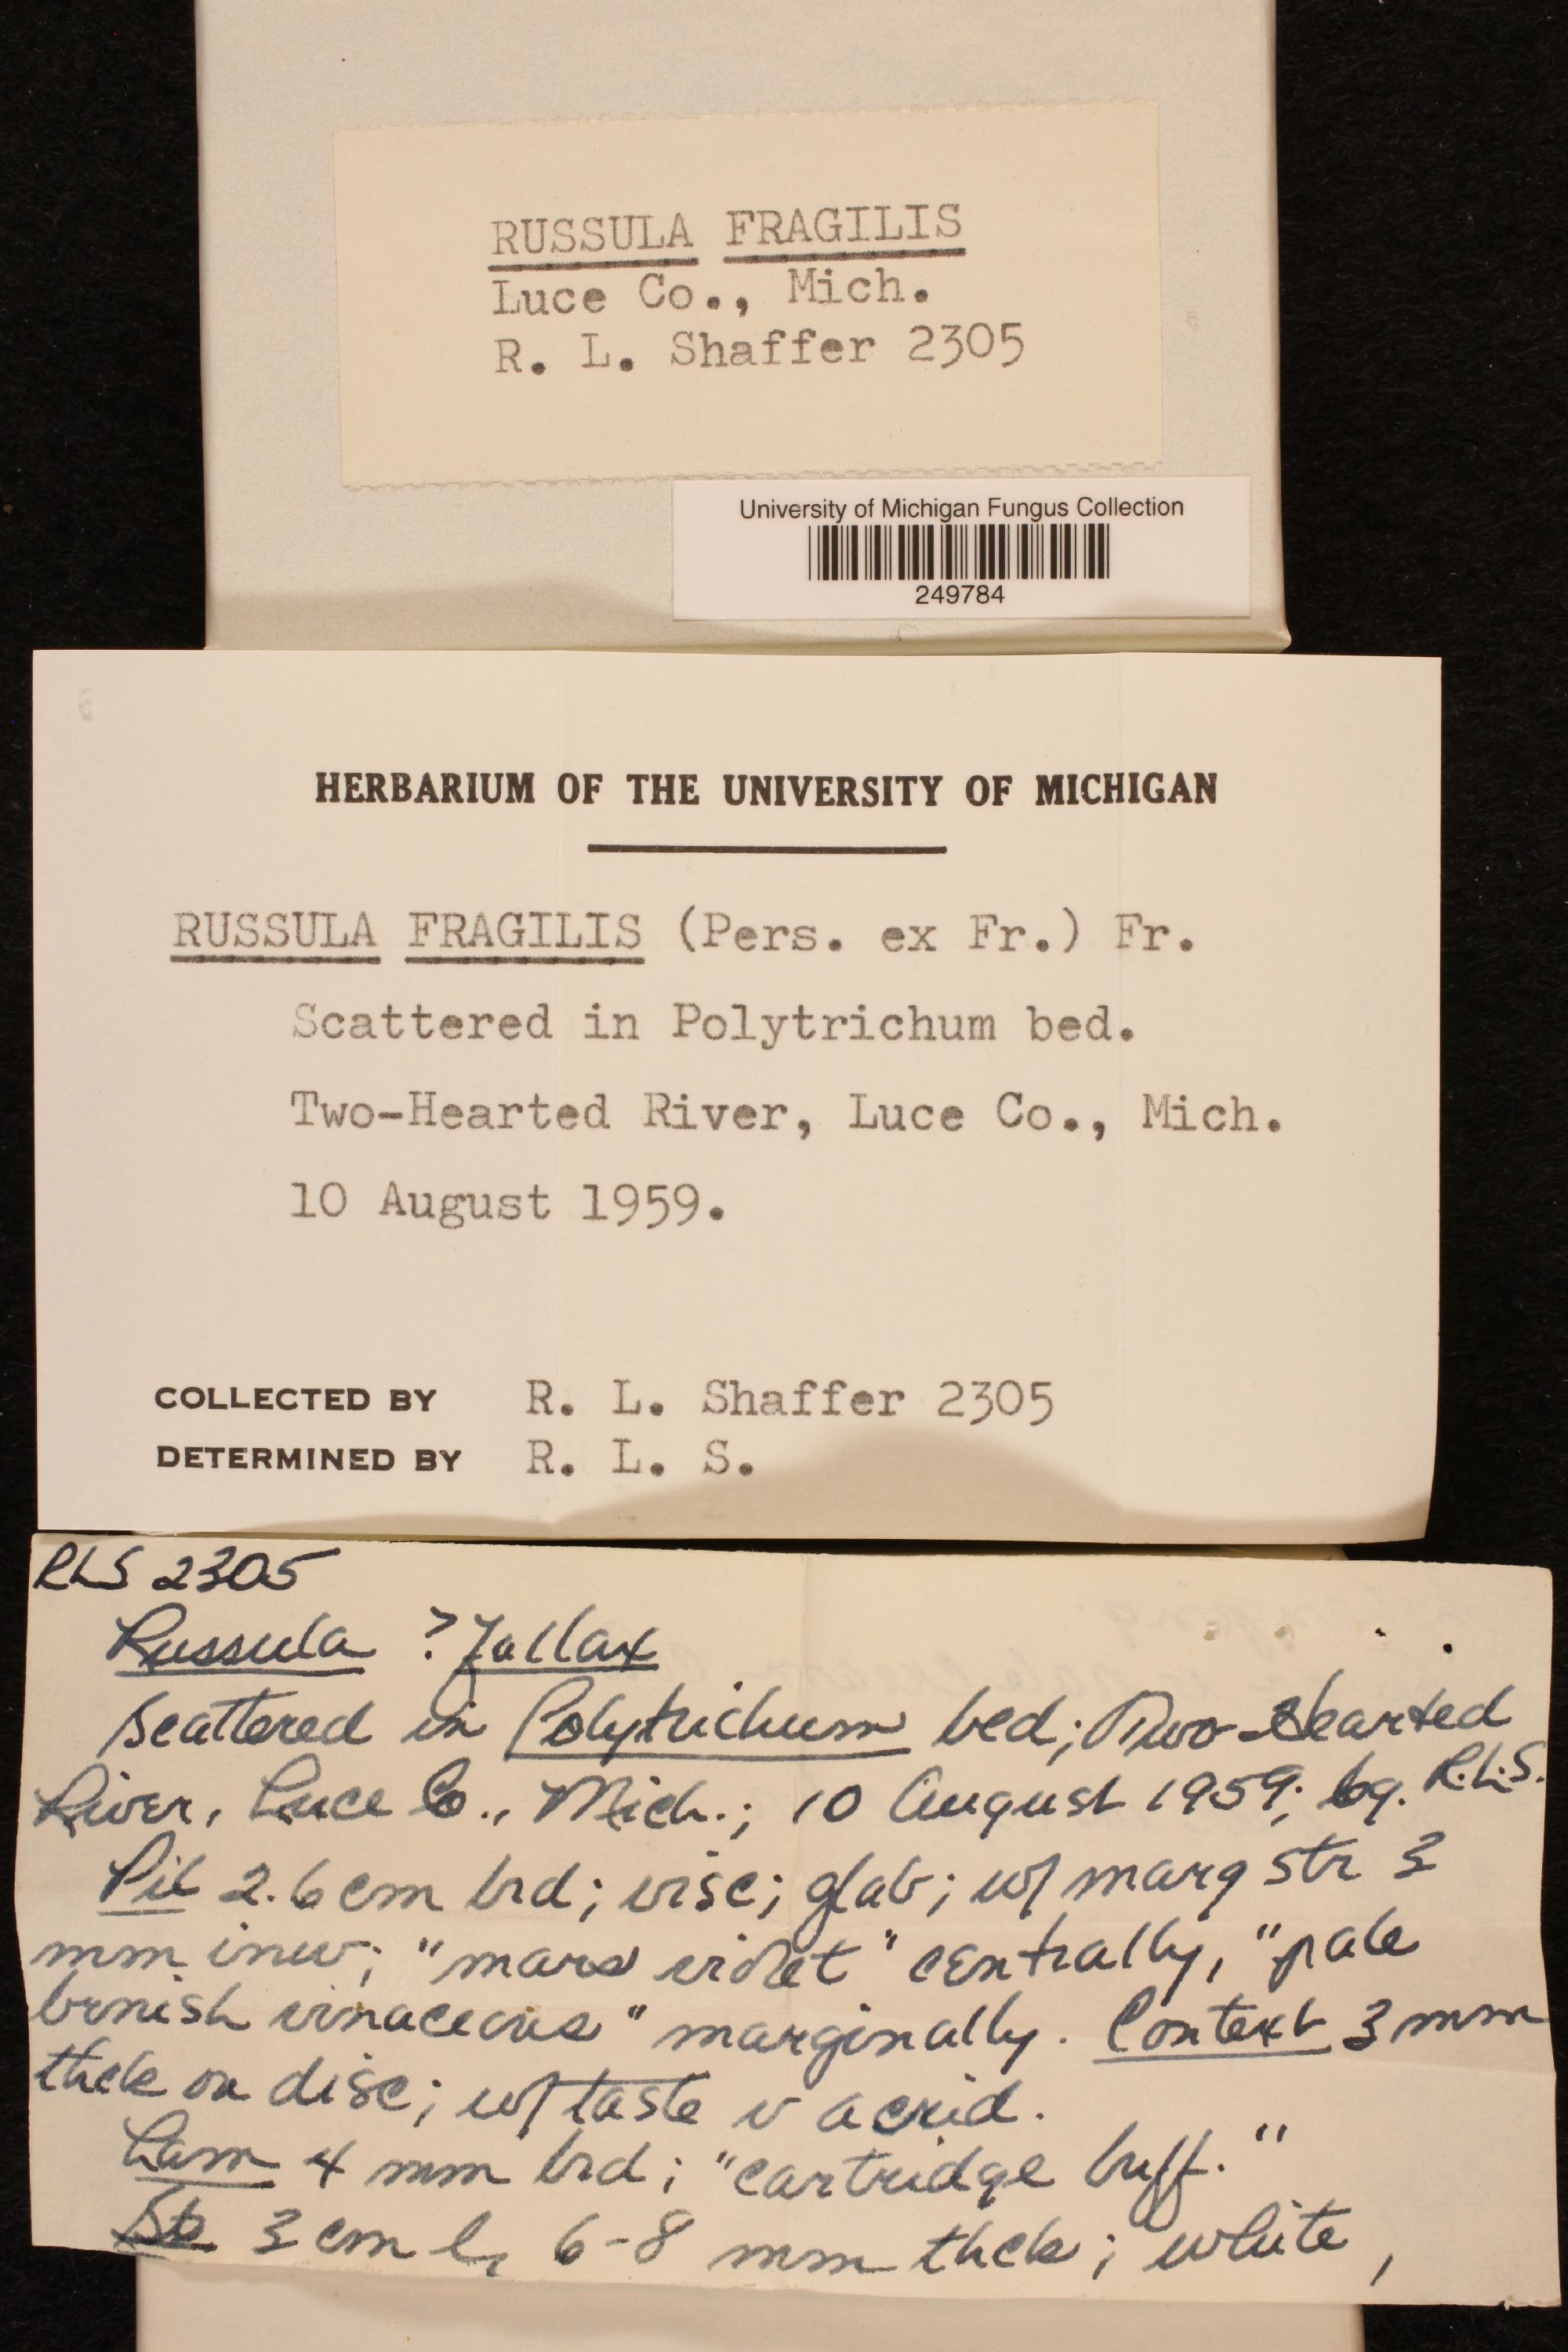 RUSSULA FRAGILIS
Luce Co., Mich.
R. L. Shaffer 2305
University of Michigan Fungus Collection
249784
HERBARIUM OF THE UNIVERSITY OF MICHIGAN
RUSSULA FRAGILIS (Pers. ex Fr.) Fr.
Scattered in Polytrichum bed.
Two-Hearted River, Luce Co., Mich.
10 August 1959.
COLLECTED BY R. L. Shaffer 2305
DETERMINED BY R. L. S.
RLS 2305
Russula ? fallax
Scattered in Polytrichum bed; Two-Hearted
River, Luce Co., Mich.; 10 August 1959; leg. R.L.S.
Pil 2.6 cm brd; visc; glab; w/ marg str 3
mm inw; "mars violet" centrally, "pale
brnish vinaceous" marginally. Context 3 mm
thck on disc; w/ taste v acrid.
Lam 4 mm brd; "cartridge buff."
St 3 cm l, 6-8 mm thck; white,